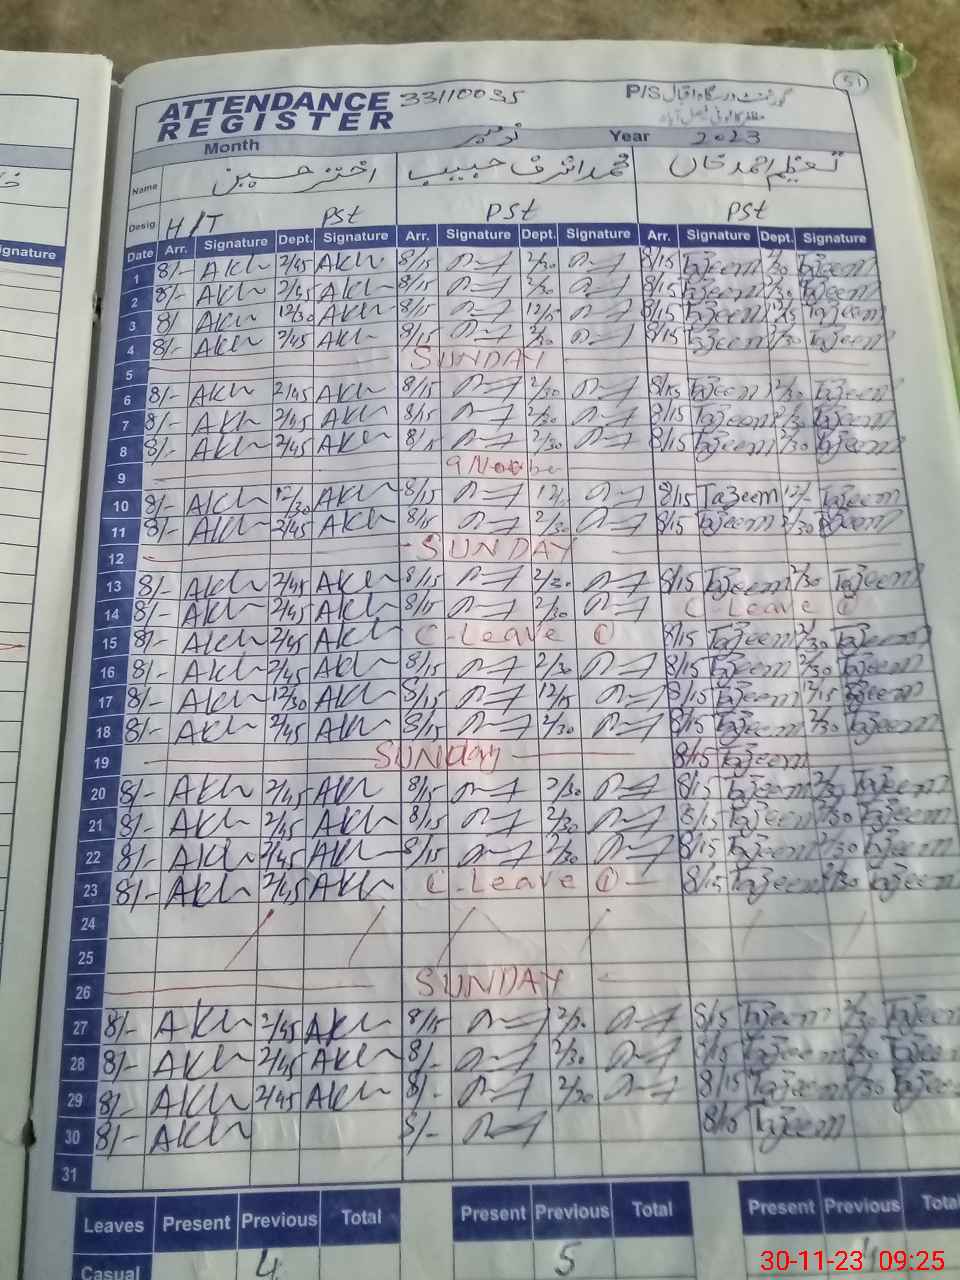 51
ATTENDANCE 33110035 P/S گورنمنٹ درسگاہ اقبال
REGISTER
Month نومبر Year 2023
Name اختر حسین محمد اشرف حبیب تعظیم احمد خان
Desig H/T PSt PSt PSt
Date Arr. Signature Dept. Signature Arr. Signature Dept. Signature Arr. Signature Dept. Signature
1 8/- 2/45 8/15 2/30 8/15 Tazeem 2/30 Tazeem
2 8/- 2/45 8/15 2/30 8/15 Tazeem 2/30 Tazeem
3 8/ 12/30 8/15 12/15 8/15 Tazeem 12/15 Tazeem
4 8/- 2/45 8/15 2/30 8/15 Tazeem 2/30 Tazeem
5 SUNDAY
6 8/- 2/45 8/15 2/30 8/15 Tazeem 2/30 Tazeem
7 8/- 2/45 8/15 2/30 8/15 Tazeem 2/30 Tazeem
8 8/- 2/45 8/15 2/30 8/15 Tazeem 2/30 Tazeem
9 9
10 8/- 12/30 8/15 8/15 Tazeem 12/- Tazeem
11 8/- 2/45 8/15 2/30 8/15 Tazeem 2/30 Tazeem
12 SUNDAY
13 8/- 2/45 8/15 2/30 8/15 Tazeem 2/30 Tazeem
14 8/- 2/45 8/15 2/30 C-Leave ①
15 8/- 2/45 C-Leave ① 8/15 Tazeem 2/30 Tazeem
16 8/- 2/45 8/15 2/30 8/15 Tazeem 2/30 Tazeem
17 8/- 12/30 8/15 12/15 8/15 Tazeem 12/15 Tazeem
18 8/- 2/45 8/15 2/30 8/15 Tazeem 2/30 Tazeem
19 SUNDAY 8/15 Tazeem
20 8/- 2/45 8/15 2/30 8/15 Tazeem 2/30 Tazeem
21 8/- 2/45 8/15 2/30 8/15 Tazeem 2/30 Tazeem
22 8/- 2/45 8/15 2/30 8/15 Tazeem 2/30 Tazeem
23 8/- 2/45 C-Leave ① 8/15 Tazeem 2/30 Tazeem
24
25
26 SUNDAY
27 8/- 2/45 8/15 2/30 8/15 Tazeem 2/30 Tazeem
28 8/- 2/45 8/- 2/30 8/15 Tazeem 2/30 Tazeem
29 8/- 2/45 8/- 2/30 8/15 Tazeem 2/30 Tazeem
30 8/- 8/- 8/15 Tazeem
31
Leaves Present Previous Total Present Previous Total Present Previous Total
Casual 4 5
30-11-23 09:25
ignature